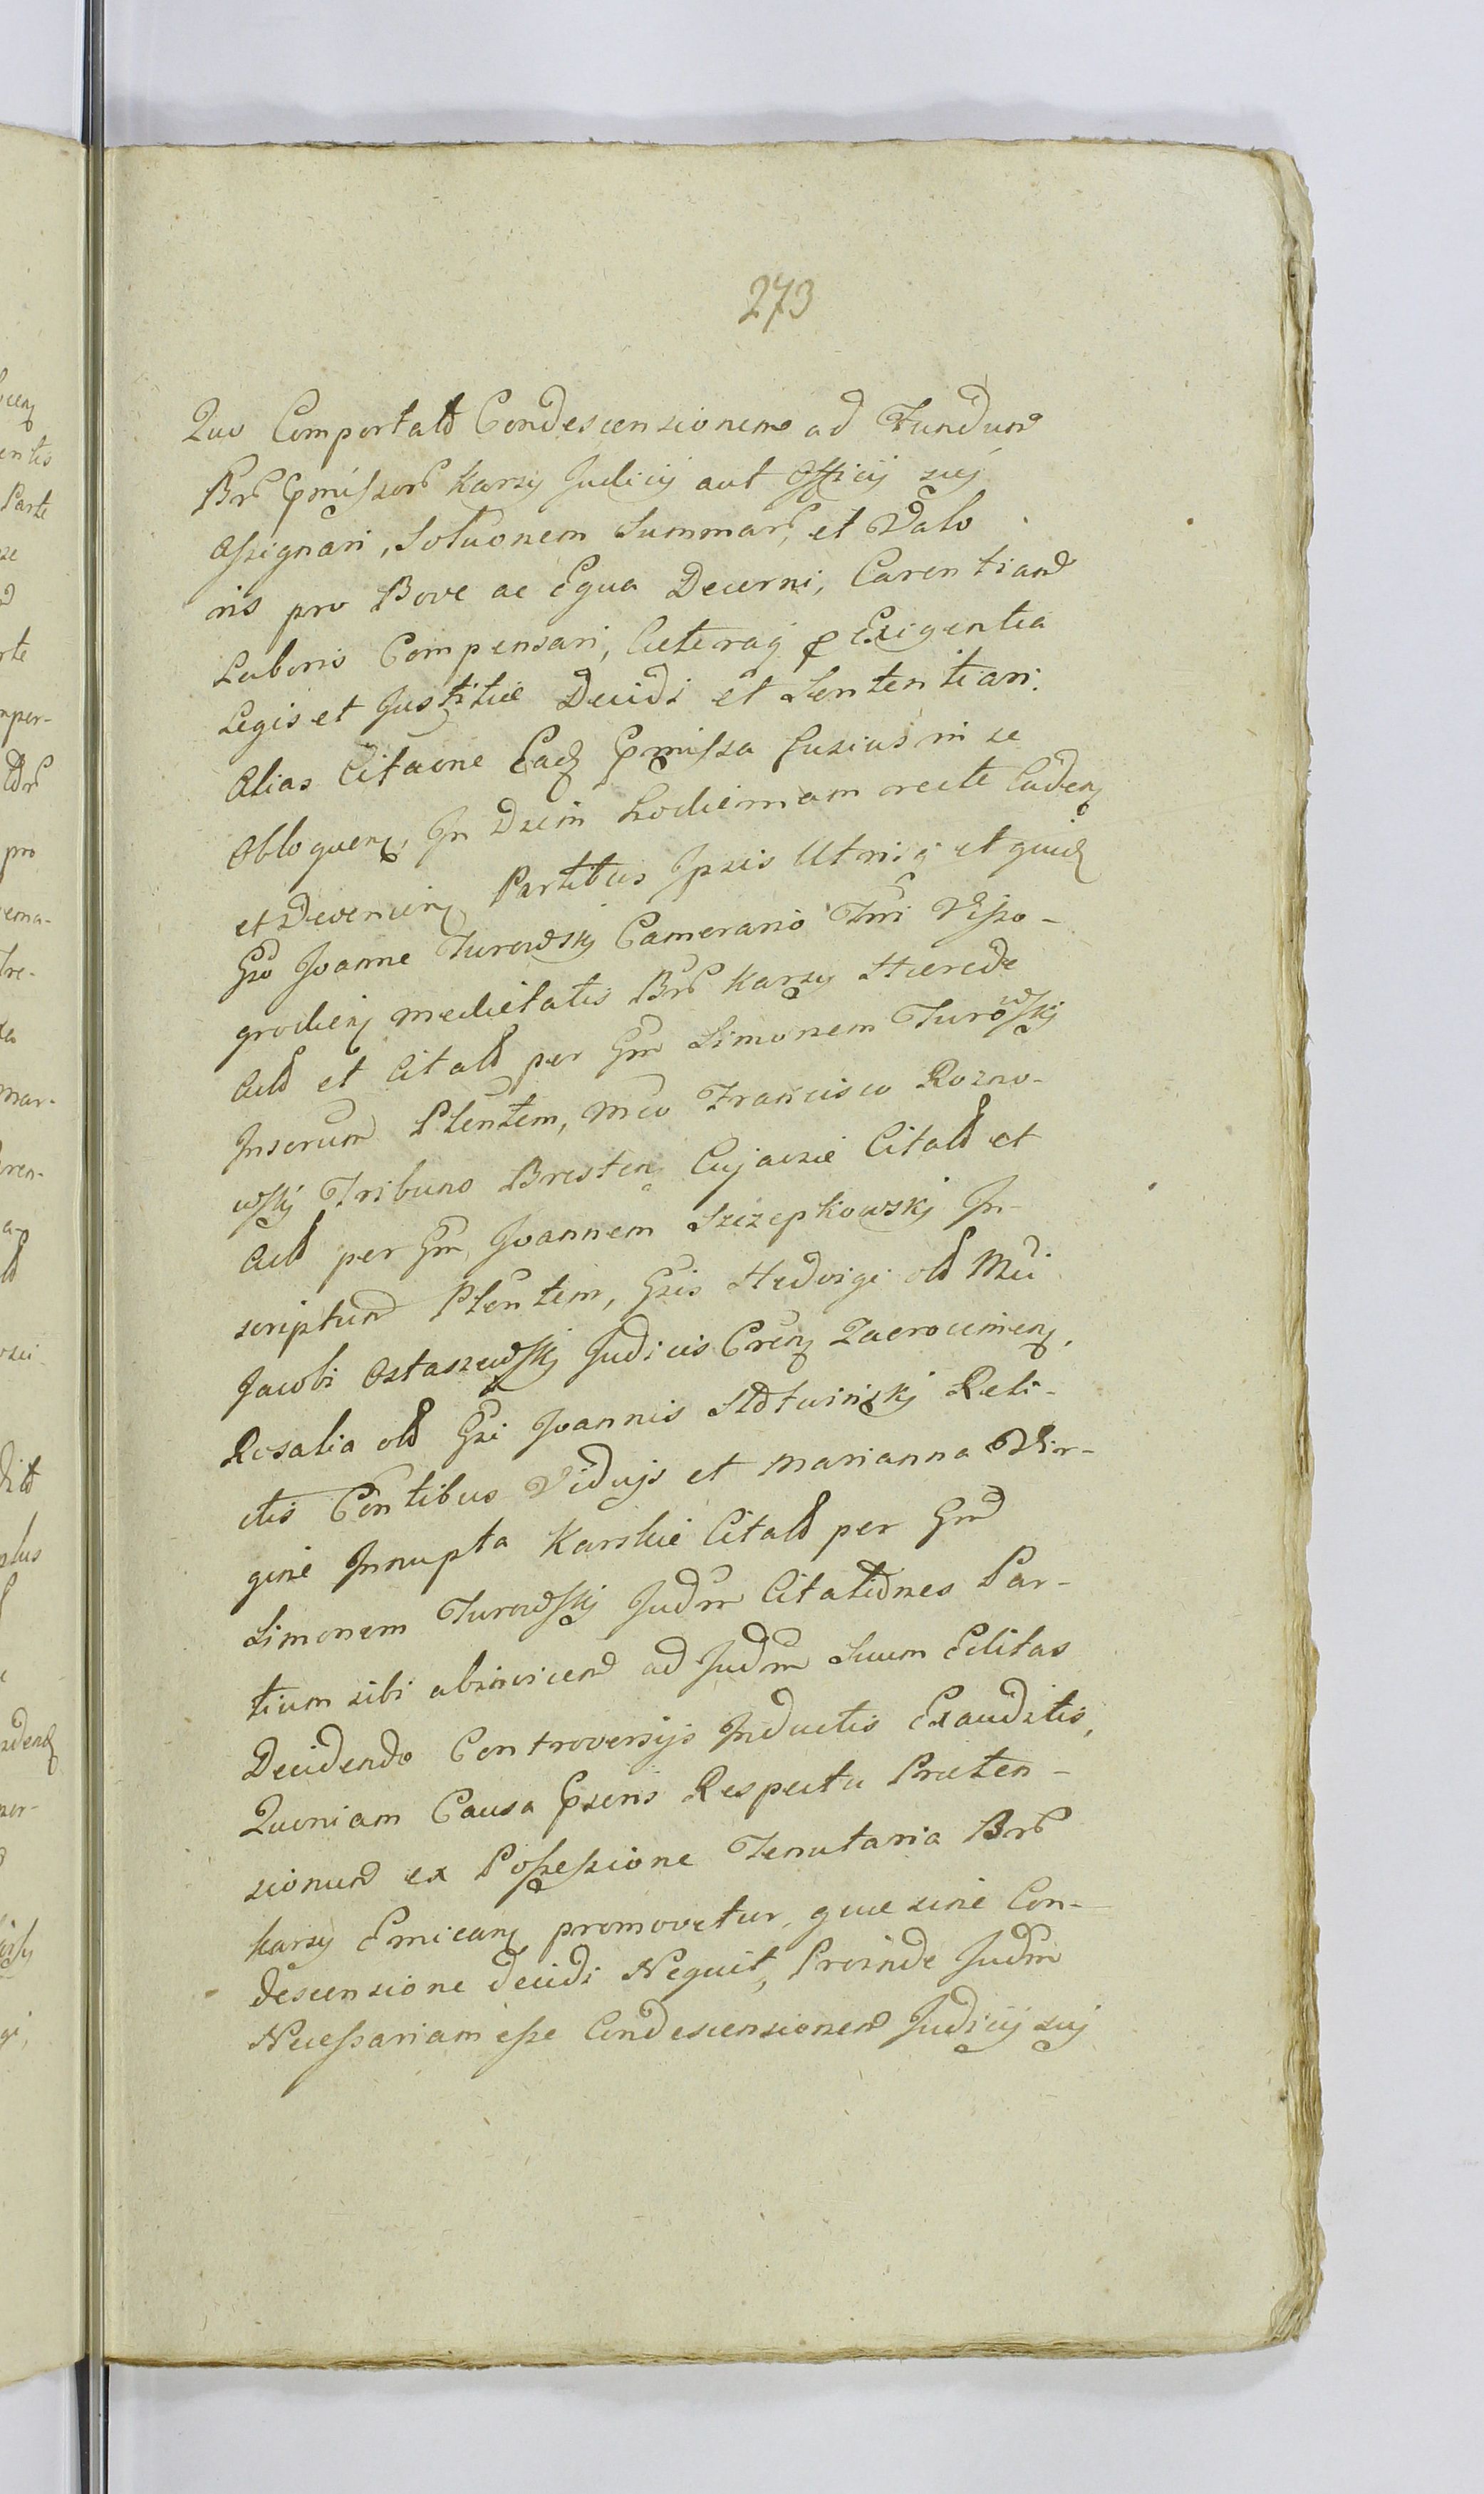 273
Quo Comportato Condescensionem ad Fundum
Br̃ p̃missor̃ Karzy Judicij aut Officij sui
assignari, Solu͠onem Summar̃, et Valo
ris pro Bove ac Equa Decerni, Carentiam
Laboris Compensari, Caeteraq̃ p Exigentia
Legis et Justitiae Decidi et Sententiari.
Alias Cita͠one Eaq p̃missa fusius in se
Obloquen, In D͠em hodiernam recte Caden
et Devenien Partibus Ipsis Utrisq̃ et quid
Gso Joanne Turowskj Camerario Tr̃ri Visso-
grodien medietatis Br̃ Karzy Haerede
Act̃ et Citat̃ per Gm̃ Simonem Turowskj
Inscrum Pl̃entem, Mco Francisco Rozno-
wskj Tribuno Bresten Cujaviae Citat̃ et
Act̃ per Gm̃ Joannem Szczepkowskj In-
scriptum Pl̃entem, Gsis Hedvigi ol̃ Mci
Jacobi Ostaszewskj Judicis C͠ren Zacrocimien,
Rosalia ol̃ Gsi Joannis Mdtwinskj Reli-
ctis C͠ontibus Viduis et Marianna Vir-
gine Innupta Karskie Citat̃ per Gm̃
Simonem Turowskj Jud͠m Citationes Par-
tium sibi abinvicem ad Jud͠m Suum Editas
Decidendo Controversijs Inductis Exauditis,
Quoniam Causa p̃sens Respectu Praeten-
sionum ex Possessione Tenutaria Br̃
Karzy Emican promovetur, quae sine Con-
descensione decidi Nequit, Proinde Jud͠m
Necessariam esse Condescensionem Judicij sui